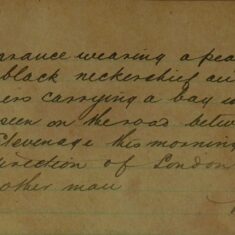 arance wearing a pea
black neckerchief an
ers carrying a bag
seen on the road betw
Stevenage this morning
direction of London
other man